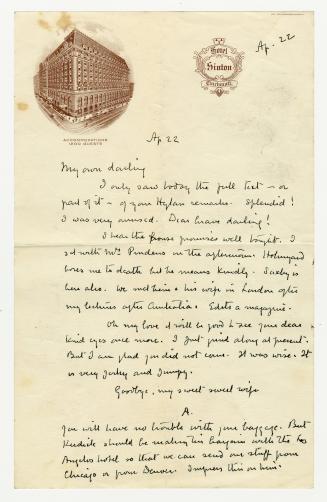 Ap. 22
Hotel
Sinton
Cincinnati
ACCOMMODATIONS
1200 GUESTS
Ap 22
My own darling
I only saw today the full text – or
part of it – of your Hylan remarks. Splendid!
I was very amused. Dear brave darling!
I hear the house promises well tonight. I
sit with Mrs Pinders in the afternoon.
bores me to death but he means kindly. Saxby is
here also. We met him & his wife in London after
my lectures after Australia. Edits a magazine.
Oh my love it will be good to see your dear
kind eyes once more. I just jand along at present.
But I am glad you did not come. It was wise. It
is very jerky and jumpy.
Goodbye, my sweet sweet wife
A.
You will have no trouble with your baggage. But
Kedick should be making his bargain with the Los
Angeles hotel so that we can send our stuff from
Chicago or from Denver. Impress this on him.